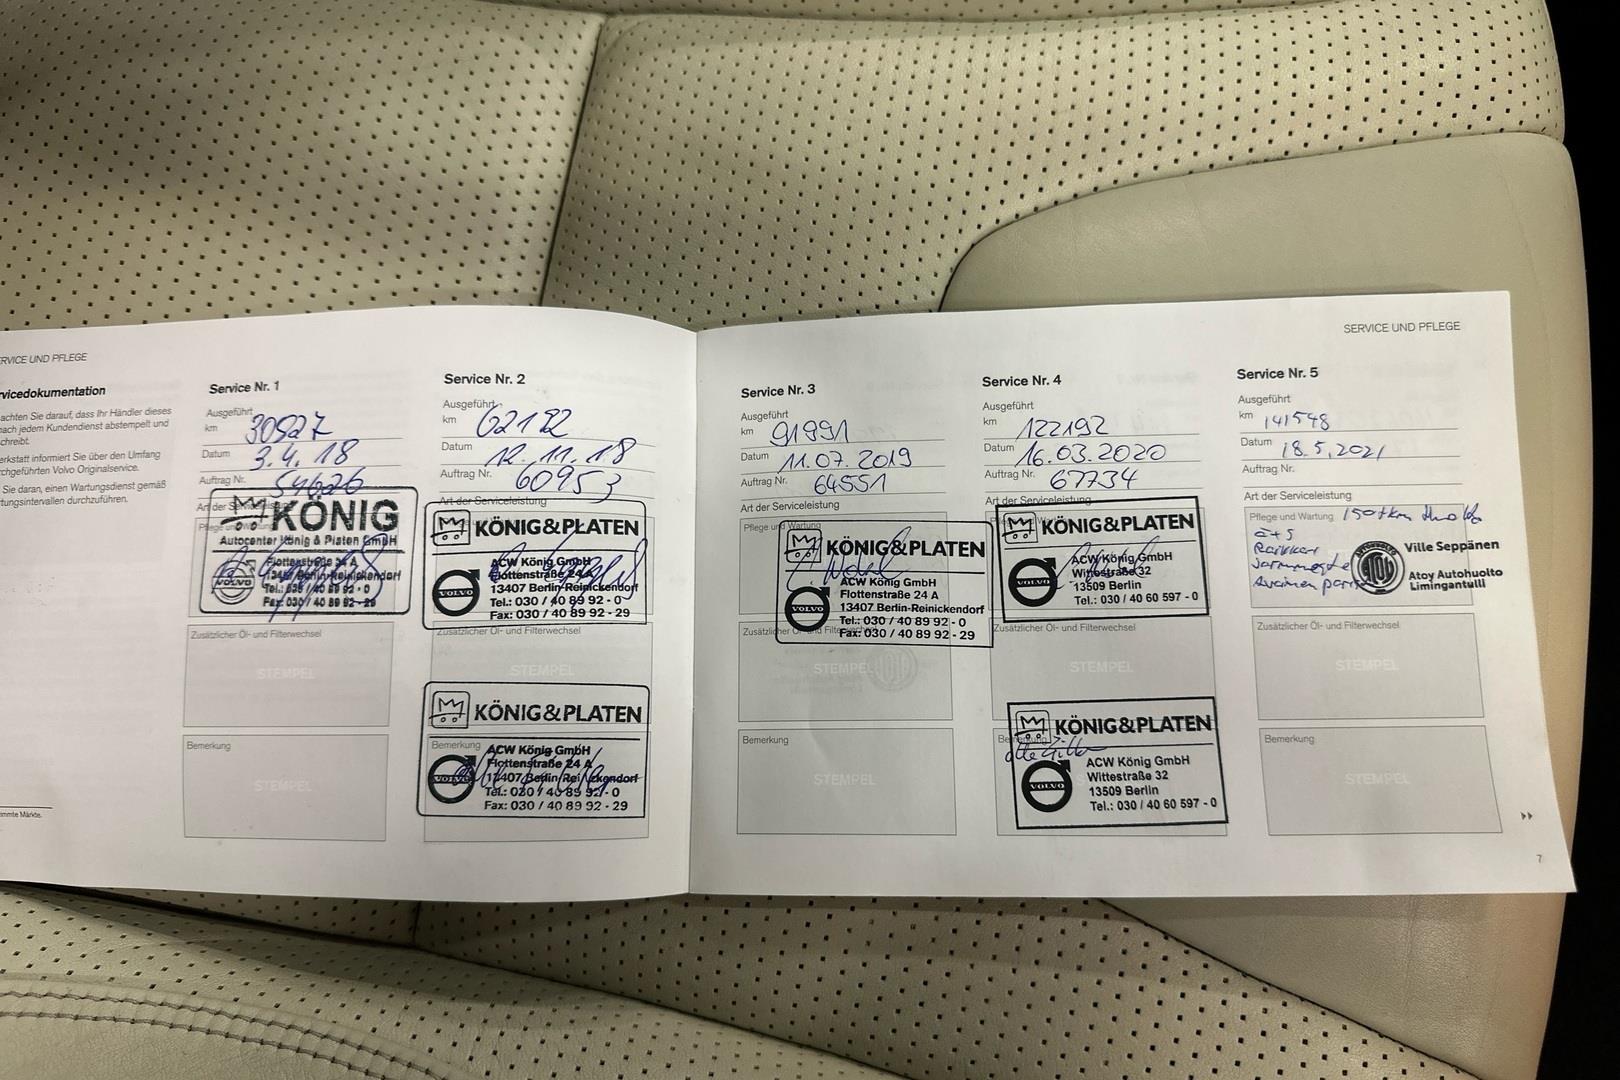 RVICE UND PFLEGE
rvicedokumentation
achten Sie darauf, dass Ihr Händler dieses
nach jedem Kundendienst abstempelt und
chreibt.
erkstatt informiert Sie über den Umfang
chgeführten Volvo Originalservice.
Sie daran, einen Wartungsdienst gemäß
tungsintervallen durchzuführen.
immte Märkte.
Service Nr. 1
Ausgeführt
km 30527
Datum 3.4.18
Auftrag Nr. 54626
Art der Serviceleis
KÖNIG
Autocenter König & Platen GmbH
Flottenstraße 24 A
13407 Berlin-Reinickendorf
Tel.: 030 / 40 89 92 - 0
Fax: 030 / 40 89 92 - 29
VOLVO
Zusätzlicher Öl- und Filterwechsel
STEMPEL
Bemerkung
STEMPEL
Service Nr. 2
Ausgeführt
km 62182
Datum 12.11.18
Auftrag Nr. 60953
Art der Serviceleistung
KÖNIG&PLATEN
ACW König GmbH
Flottenstraße 24 A
13407 Berlin-Reinickendorf
Tel.: 030 / 40 89 92 - 0
Fax: 030 / 40 89 92 - 29
VOLVO
Zusätzlicher Öl- und Filterwechsel
STEMPEL
KÖNIG&PLATEN
Bemerkung
ACW König GmbH
Flottenstraße 24 A
13407 Berlin-Reinickendorf
Tel.: 030 / 40 89 92 - 0
Fax: 030 / 40 89 92 - 29
VOLVO
SERVICE UND PFLEGE
Service Nr. 3
Ausgeführt
km 91891
Datum 11.07.2019
Auftrag Nr. 64551
Art der Serviceleistung
Pflege und Wartung
KÖNIG&PLATEN
ACW König GmbH
Flottenstraße 24 A
13407 Berlin-Reinickendorf
Tel.: 030 / 40 89 92 - 0
Fax: 030 / 40 89 92 - 29
VOLVO
Zusätzlicher Öl- und Filterwechsel
STEMPEL
Bemerkung
STEMPEL
Service Nr. 4
Ausgeführt
km 122192
Datum 16.03.2020
Auftrag Nr. 67734
Art der Serviceleistung
KÖNIG&PLATEN
ACW König GmbH
Wittestraße 32
13509 Berlin
Tel.: 030 / 40 60 597 - 0
VOLVO
Zusätzlicher Öl- und Filterwechsel
STEMPEL
KÖNIG&PLATEN
ACW König GmbH
Wittestraße 32
13509 Berlin
Tel.: 030 / 40 60 597 - 0
VOLVO
Service Nr. 5
Ausgeführt
km 141548
Datum 18.5.2021
Auftrag Nr.
Art der Serviceleistung
Pflege und Wartung 150tkm Huolto
Ö+S
Raikkari
Avaimen
Ville Seppänen
Atoy Autohuolto
Limingantulli
ATOY
Zusätzlicher Öl- und Filterwechsel
STEMPEL
Bemerkung
STEMPEL
7